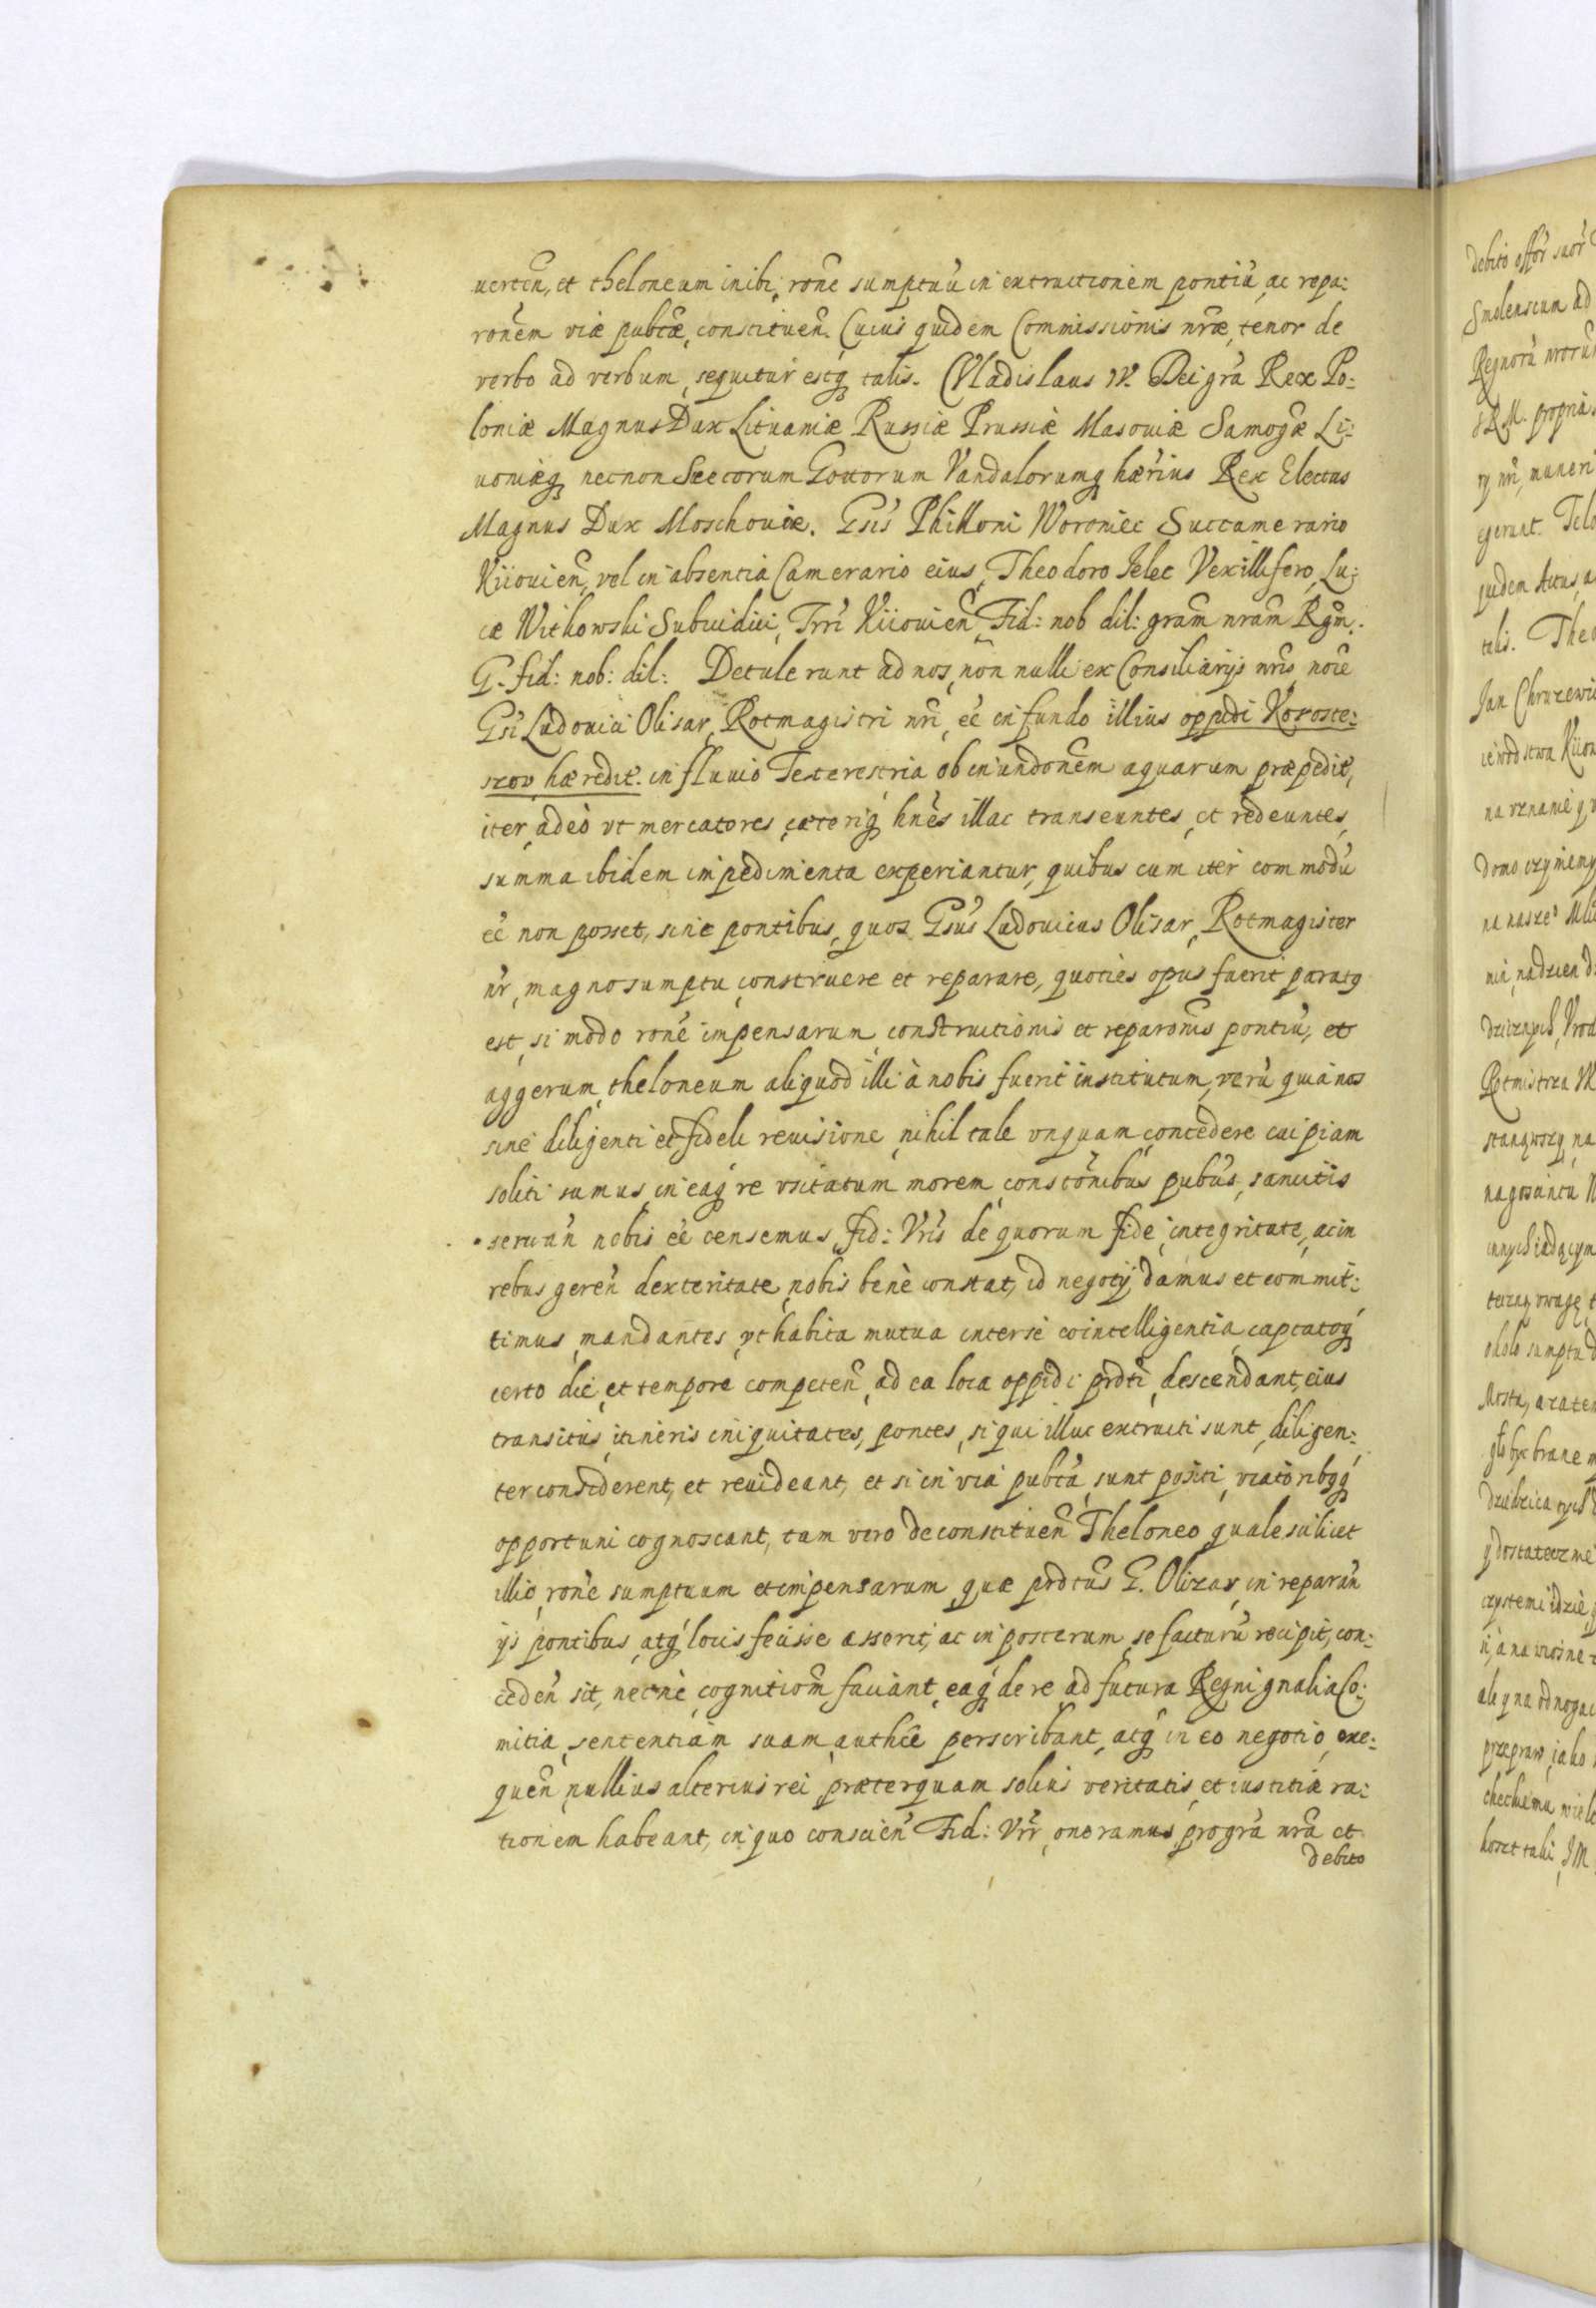 uerten, et theloneum inibi, rone sumptuu in extructionem pontiu, ac repa:
ronem viæ pubcæ, constituen. Cuius quidem Commissionis nræ, tenor de
verbo ad verbum, sequitur estq talis. Vladislaus IV. Dei gra Rex Po:
loniæ Magnus Dux Lituaniæ Russiæ Prussiæ Masouiæ Samogæ Li:
uoniæq necnon Suecorum Gottorum Vandalorumq hærius Rex Electus
Magnus Dux Moschouiæ. Gsis Philloni Woroniec Succamerario
Kiiouien, vel in absentia Camerario eius, Theodoro Ielec Vexillifero, Lu:
cæ Witkowski Subiudici, Trri Kiiouien Fid: nob dil: gram nram Rgm.
G. fid: nob: dil: Detulerunt ad nos, non nulli ex Consiliarijs nris, noie
Gsi Ludouici Olisar, Rotmagistri nri, eé in fundo illius oppidi Koroste:
szov hæredit. in fluuio Teterestria ob inundonem aquarum præpedit,
iter, adeò vt mercatores, cæteriq hnes illac transeuntes, et redeuntes,
summa ibidem impedimenta experiantur, quibus cum iter commodu
eé non posset, sine pontibus, quos Gsus Ludouicus Olisar, Rotmagister
nr, magno sumptu, construere et reparare, quoties opus fuerit paratq
est, si modo rone impensarum, constructionis et reparonis pontiu, et
aggerum, theloneum aliquod illi à nobis fuerit institutum, verù quia nos
sine diligenti et fideli reuisione, nihil tale vnquam, concedere cuipiam
soliti sumus, in eaq re vsitatum morem, constonibus pubcis, sancitis
seruan nobis eé censemus, fid: Vris de quorum fide, integritate, ac in
rebus geren dexteritate, nobis benè constat, id negotij, damus et commit:
timus, mandantes, vt habita mutua inter se cointelligentia, captatoq
certo die, et tempore competen, ad ea loca oppidi prdti, descendant, eius
transitus, itineris iniquitates, pontes, si qui illuc extructi sunt, diligen:
ter considerent, et reuideant, et si in via pubca, sunt positi, viatoribqq
opportuni cognoscant, tam vero de constituen Theloneo quale scilicet
illic, rone sumptuum et impensarum, quæ prdtus G. Olizar, in reparan
ijs pontibus, atq locis fecisse asserit, ac in posterum, se facturu recipit, con:
ceden sit, necne, cognitiom faciant, eaq de re, ad futura Regni gnalia Co:
mitia, sententiam suam, authce perscribant, atq in eo negotio, exe:
quen, nullius alterius rei, præterquam solius veritatis, et iustitiæ ra:
tionem habeant, in quo conscien Fid: Vrr, oneramus, pro gra nra et
debito
debito offor suor
Smolenscum ad
Regnoru nroru
S R M. propria
ry nri, muneri
egerunt.
quidem Actus, a
talis. Theo
Jan Chruzewic
iewodstwa Kiiow
na vznanie q
domo vzynieny
na nasze
nii, nadzien d
dziczych, Vrod
Rotmistrza
stanąwszy na
na gosäncu
innych iadącym
teczną vwagę
około sumptu
Mosta, a zatem
gło byc brane
dziedzica tych
y dostateczne
czystemi idzie
ii, a na wiosne
ale y na odnogac
przepraw, iako
checkiemu wiele
koszt taki I M